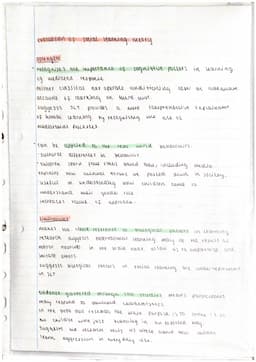 evaluation of social learning theory
strengths
recognises the importance of cognitive factors in learning
of mediated response
neither classical nor operant conditioning can be adequate
account of learning on their own
suggests SLT provides a more comprehensive explanation
of human learning by recognising the role of
mediational processes
can be applied to the real world behaviours
cultural differences in behaviour
children learn from others around them, including media
explains how cultural norms are passed around in society
useful in understanding how children come to
understand their gender role
increases value of approach
limitations
makes little reference to biological factors in learning
research suggests observational learning may be the result of
mirror neurons in the brain which allow us to empathise and
imitate others
suggests biological factors in social learning are under-represented
in SLT
evidence gathered through lab studies means participants
may respond to demand characteristics
in the bobo doll research the main purpose is to strike it so
the children were just behaving in an expected way
suggests the research tells us little about how children
learn aggression in everyday life